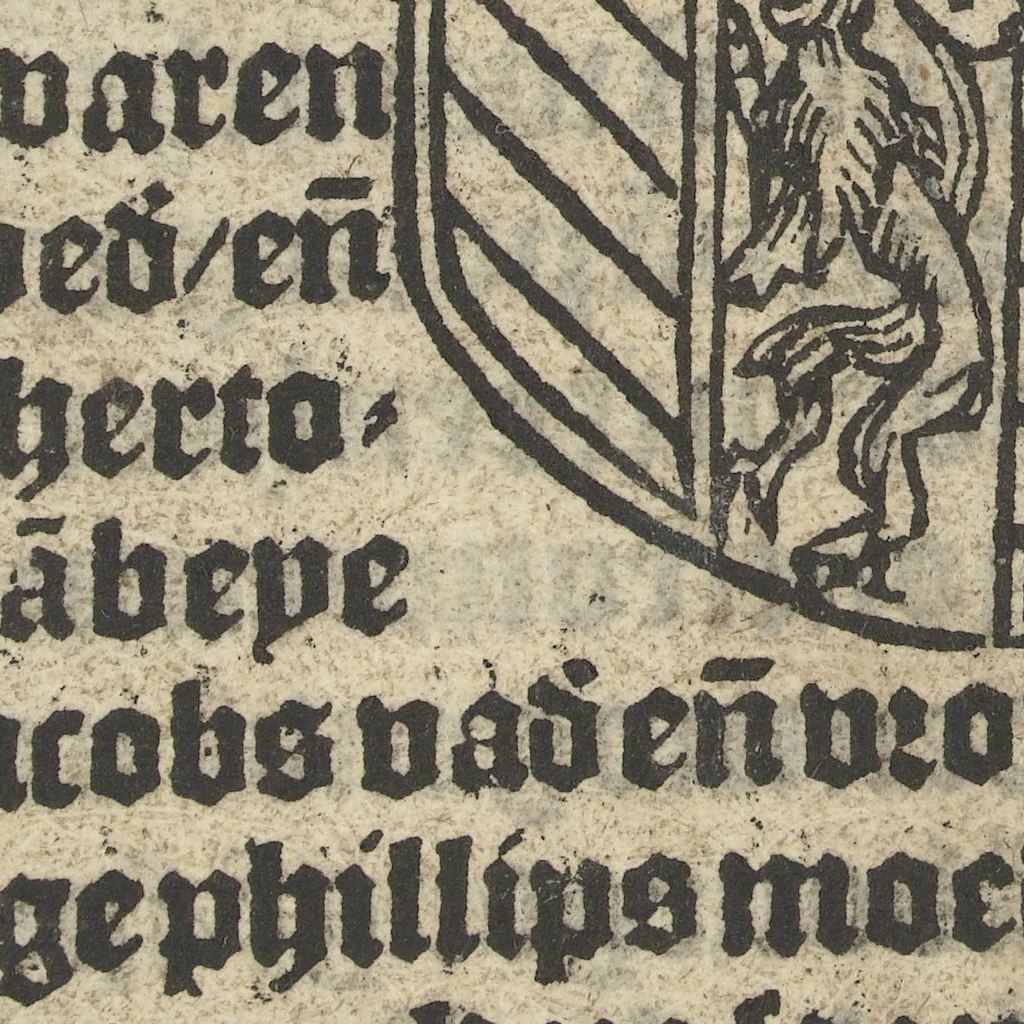 waren
oed̄/en̄
herto⸗
ābeye
acobs vad̄ en̄ vro
ge phillips moe